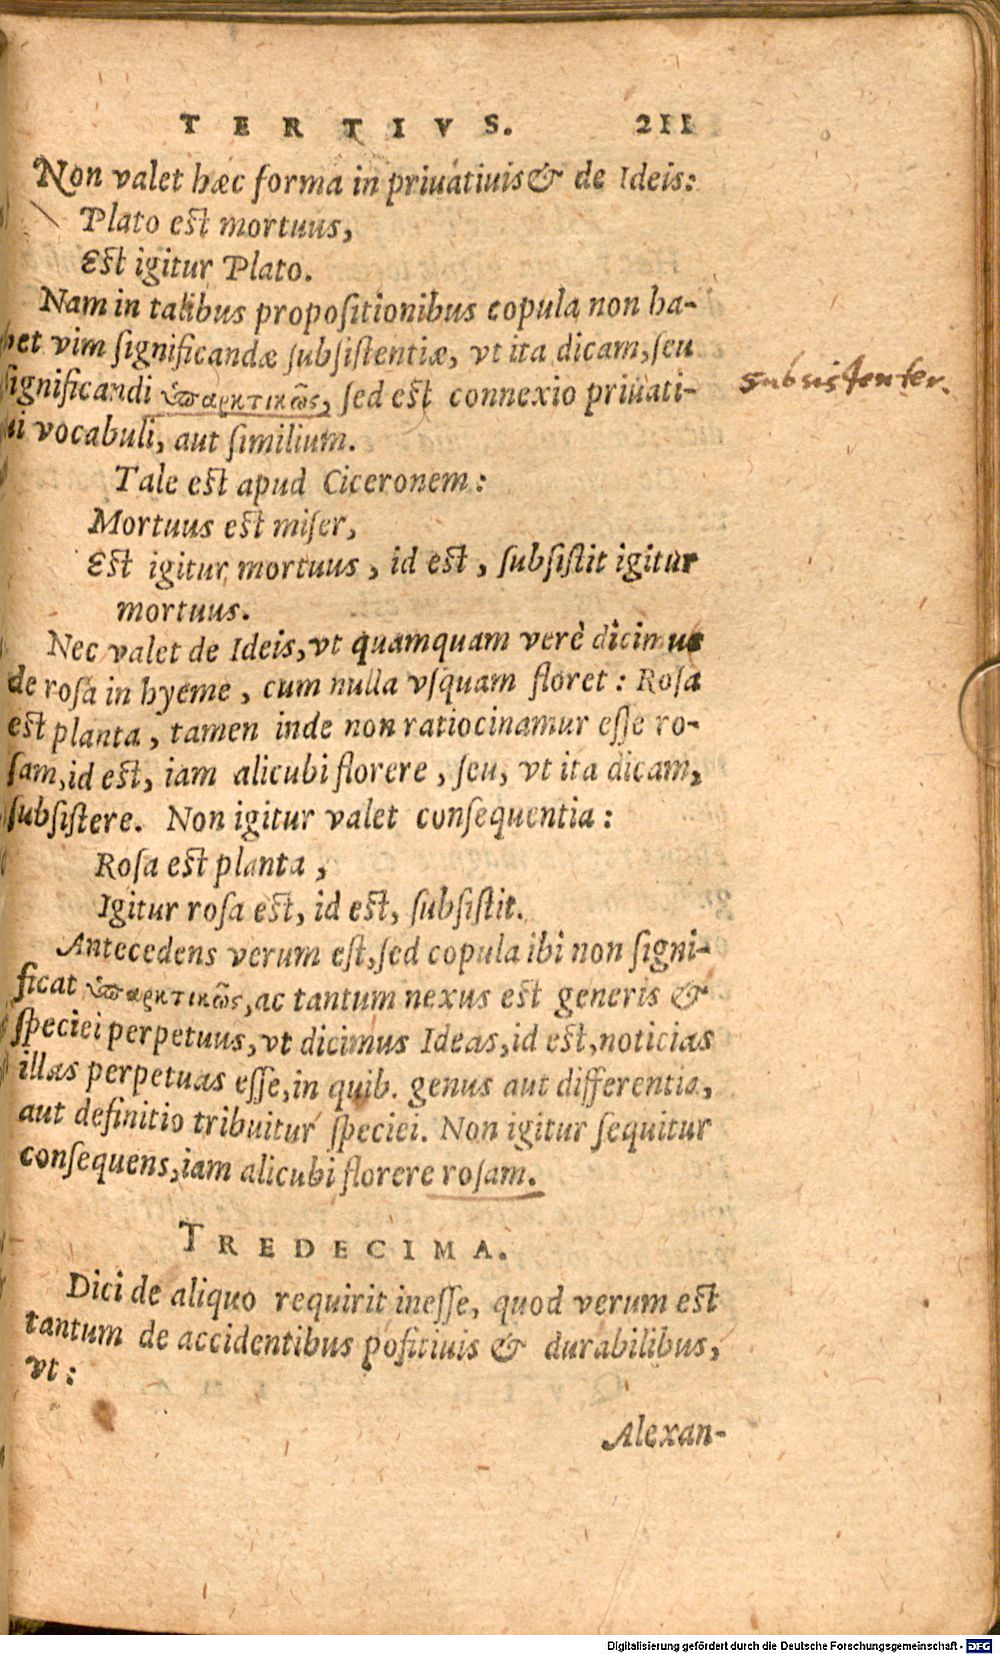 TERTIVS. 211
Non valet hæc forma in priuatiuis & de Ideis:
Plato est mortuus,
Est igitur Plato.
Nam in talibus propositionibus copula non ha-
bet vim significandæ subsistentiæ, vt ita dicam, seu
significandi ὑπαρκτικῶς, sed est connexio priuati-
ui vocabuli, aut similium.
subsistenter.
Tale est apud Ciceronem:
Mortuus est miser,
Est igitur mortuus, id est, subsistit igitur
mortuus.
Nec valet de Ideis, vt quamquam verè dicimus
de rosa in hyeme, cum nulla vsquam floret: Rosa
est planta, tamen inde non ratiocinamur esse ro-
sam, id est, iam alicubi florere, seu, vt ita dicam,
subsistere. Non igitur valet consequentia:
Rosa est planta,
Igitur rosa est, id est, subsistit.
Antecedens verum est, sed copula ibi non signi-
ficat ὑπαρκτικῶς, ac tantum nexus est generis &
speciei perpetuus, vt dicimus Ideas, id est, noticias
illas perpetuas esse, in quib. genus aut differentia,
aut definitio tribuitur speciei. Non igitur sequitur
consequens, iam alicubi florere rosam.
TREDECIMA.
Dici de aliquo requirit inesse, quod verum est
tantum de accidentibus positiuis & durabilibus,
vt:
Alexan-
Digitalisierung gefördert durch die Deutsche Forschungsgemeinschaft - DFG